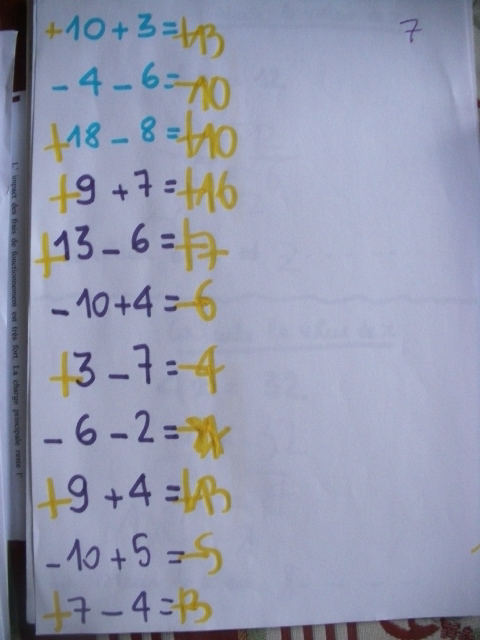 7
+10+3=+13
-4-6=-10
+18-8=+10
+9+7=+16
+13-6=+7
-10+4=-6
+3-7=-4
-6-2=-
+9+4=+13
-10+5=-5
+7-4=+3
L'impact des frais de fonctionnement est très fort. La charge principale reste l'